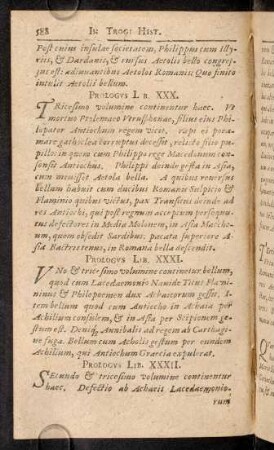 588 IN TROGI HIST.
Post enim insulae societatem, Philippus cum Illy-
riis, & Dardanis, & rursus Aetolis bello congres-
sus est: adiuvantibus Aetolos Romanis: Quo finito
intulit Aetolii bellum.
PROLOGVS LIB. XXX.
TRicesimo volumine continentur haec. Vt
mortuo Ptolemaeo filius eius Phi-
lopator Antiochum regem vicit,
decessit, relicto filio pu-
pillo: in quem cum Philippo rege Macedonum con-
sensit Antiochus. Philippi deinde gesta in Asia,
cum movisset Attalo bella. A quibus reversus
bellum habuit cum ducibus Romanis Sulpicio &
Flaminio quibus victus, pax Transitus deinde ad
res Antiochi, qui post regnum acceptum persequu-
tus defectores in Mediam Molonem, in Asia Achae-
um, quem obsedit Sardibus: pacata superiore Asia
Bactris tenus, in Romana bella descendit.
PROLOGVS LIB. XXXI.
VNo & tricesimo volumine continetur bellum,
quod cum Lacedaemonio Nabide Titus Flami-
ninus & Philopoemen dux Achaeorum gessit. I-
tem bellum quod cum Antiocho in Achaia per
Achilium consulem, & in Asia per Scipionem ge-
stum est. Denique, Annibalis ad regem ab Carthagi-
ne fuga. Bellum cum Aetolis gestum per eundem
Achilium, qui Antiochum Graecia expulerat.
PROLOGVS LIB. XXXII.
SEcundo & tricesimo volumine continentur
haec. Defectio ab Achaeis Lacedaemonio-
rum